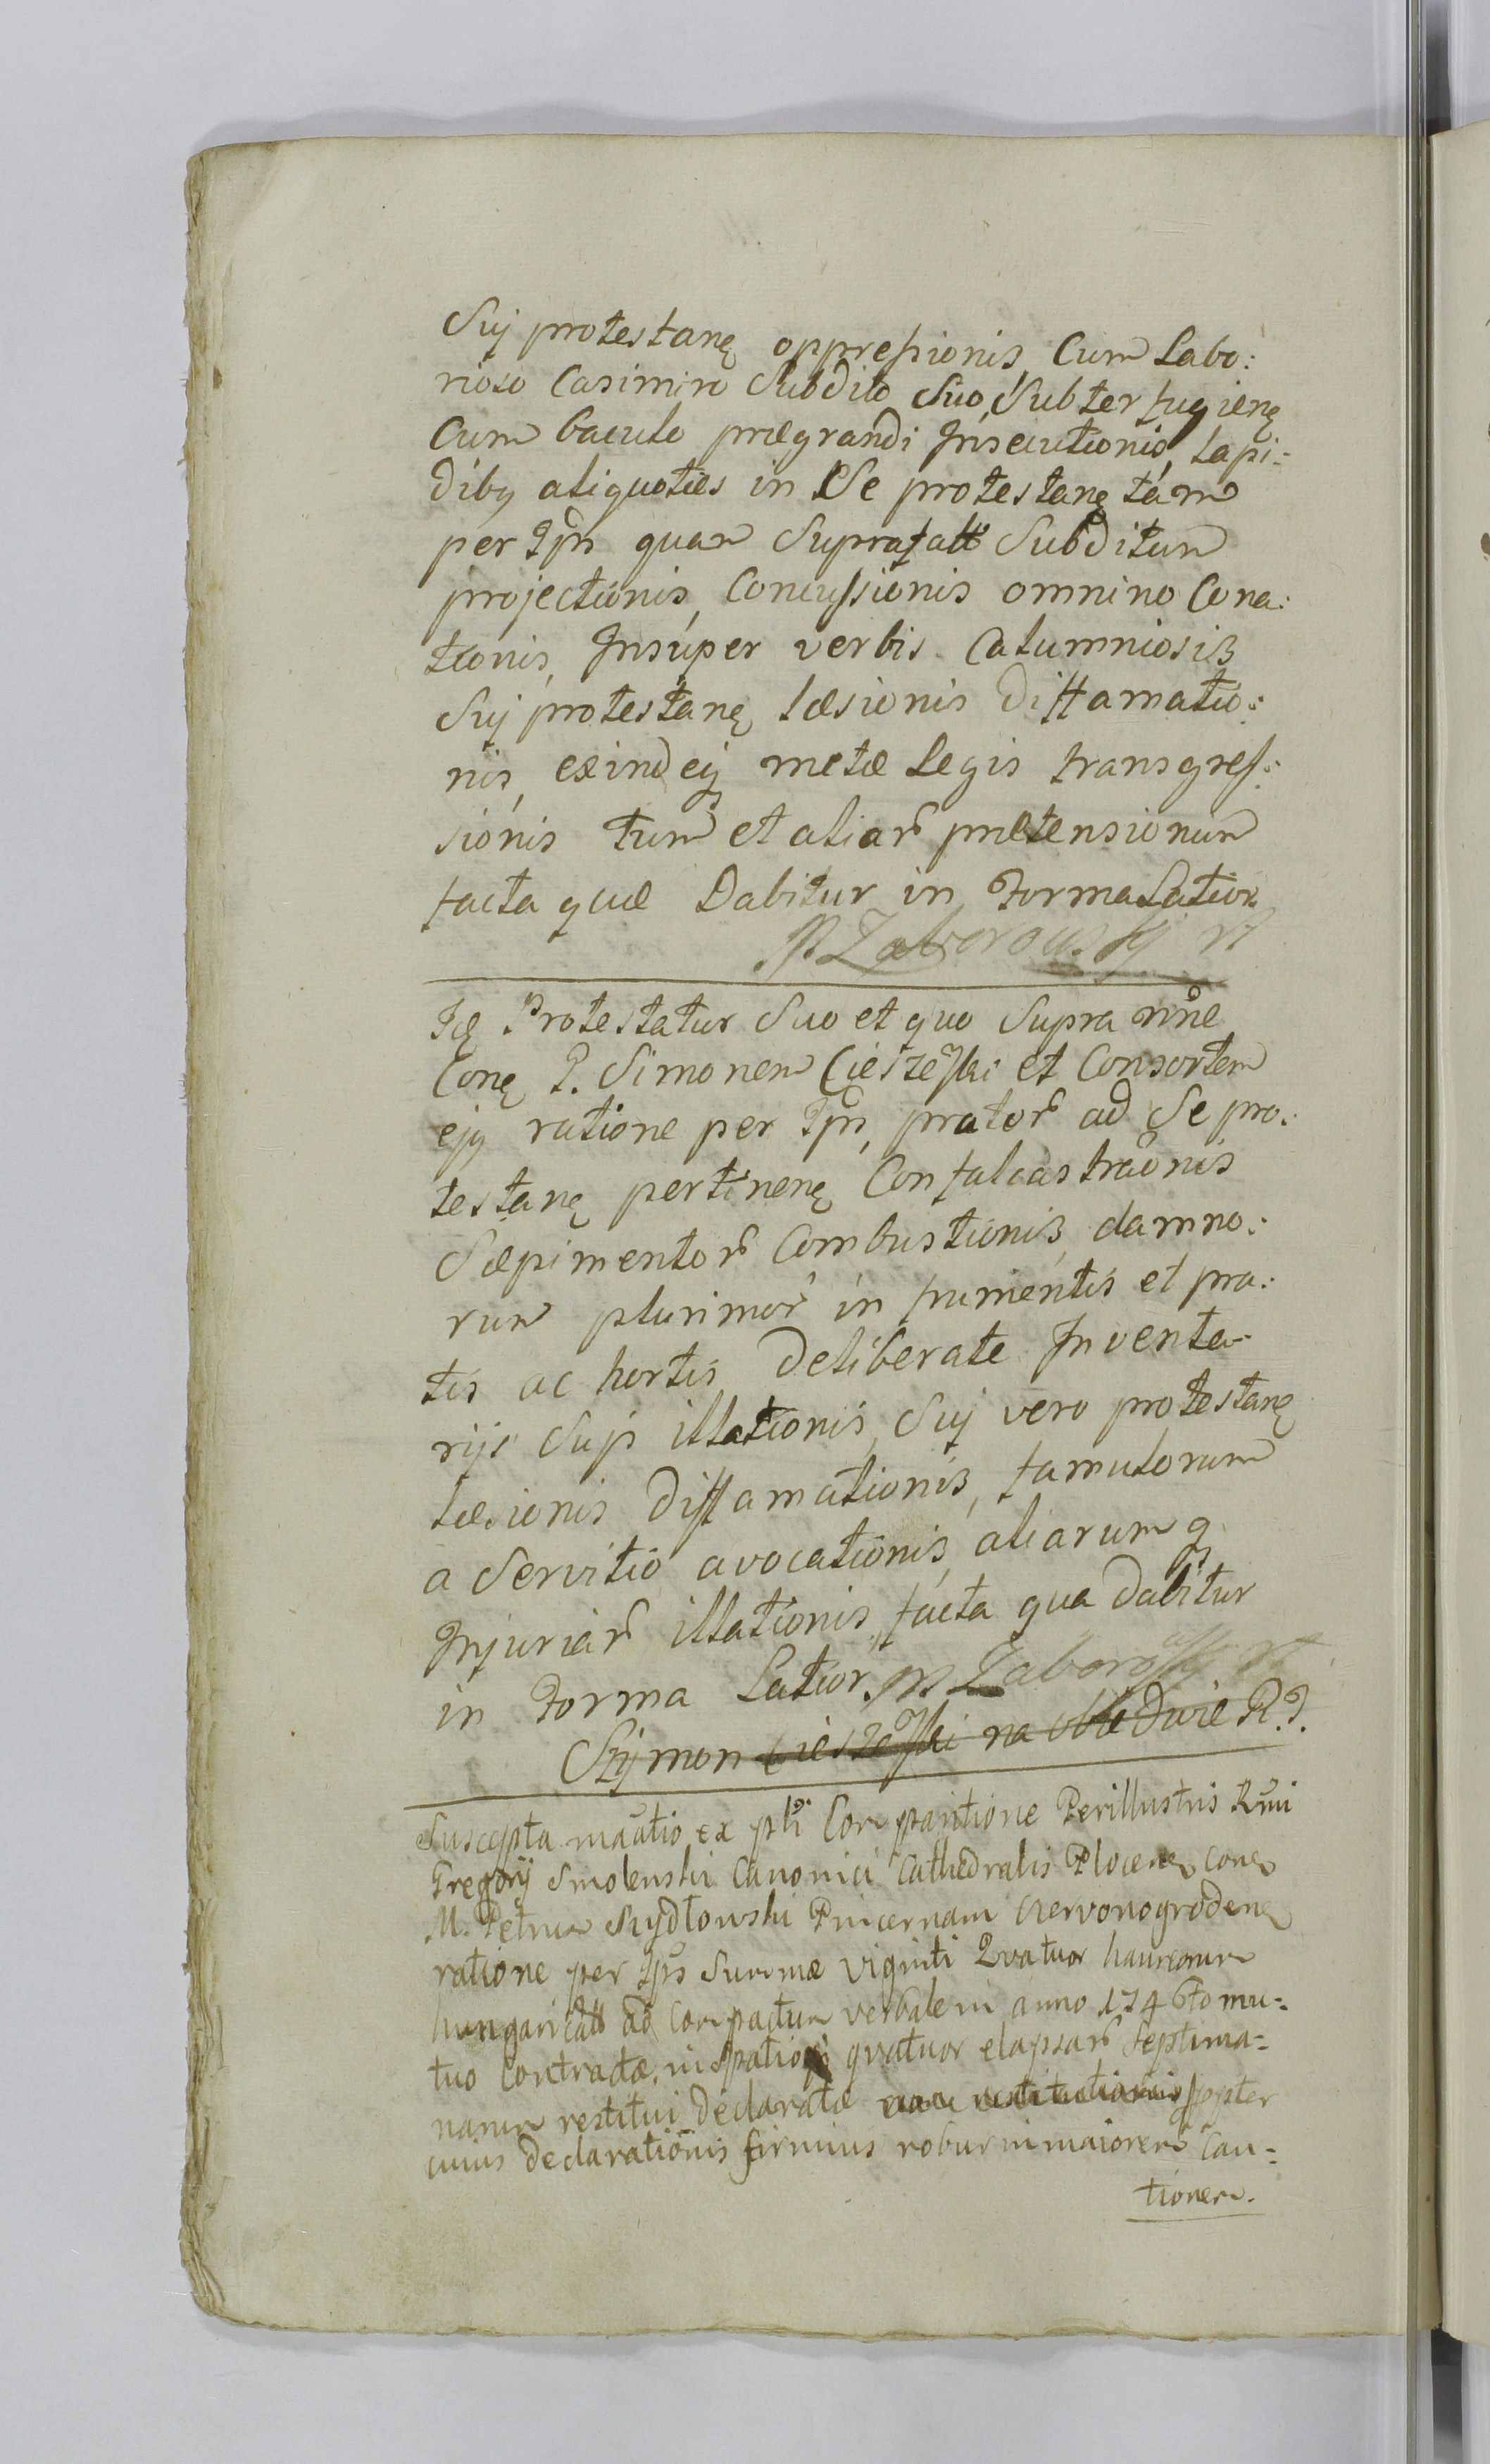 Suj protestanę oppressionis, Cum Labo:
rioso Casimiro Subdito Suo, Subterfugienę
Cum baculo prægrandi Insecutionis, lapi:
dibq aliquoties in Se protestanę tam
per Ipn quam Suprafatt Subditum
projectionis, Concussionis omnino Cona:
tionis, Insuper verbis Calumniosis
Suj protestanę læsionis diffamatio:
nis, exindeq metæ Legis transgres:
sionis tum et aliar prætensionum
facta quæ Dabitur in Forma Latior
P Zaborowskj
Ię Protestatur Suo et quo Supra nne
Conę P. Simonem Cieszeski et Consortem
ejq ratione per Ipn, prator ad Se pro:
testanę pertinenę Confalcastraonis
Sæpimentor Combustionis, damno:
rum plurimor in frumentis et pra:
tis ac hortis deliberate Inventa-
rijs Suis illationis, Suj vero protestanę
læsionis diffamationis, famulorum
a Servitio avocationis, aliarumq
Injuriar illationis, facta qua dabitur
in Forma Latior. P Zaborowskj
Szymon Cieszeski na obie dwie R.P.
Suscepta maatio ex pti Comparitione Perillustris Rmi
Gregorij Smolenski Canonici Cathedralis Plocenę conę
M. Petrum Szydłowski Pincernam Czervonogrodenę
ratione per Ipn Summæ viginti Qvatuor haureorum
hungaricall ad Compactum verbalem in anno 1746to mu:
tuo Contractæ, in spatio qvatuor elapsar septima:
narum restitui declaratæ ppter
cuius declarationis firmius robur in maiorem Cau:
tionem.